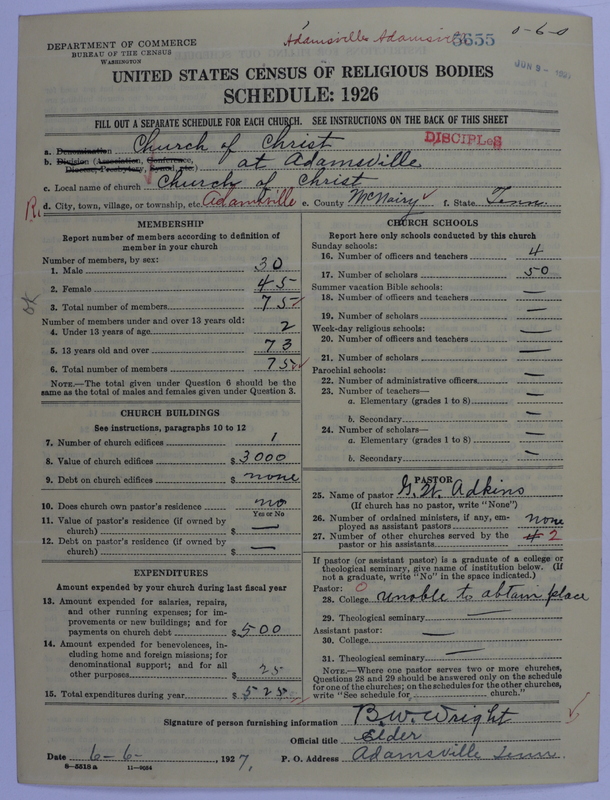 Adamsville Adamsville 5655 0-6-0
DEPARTMENT OF COMMERCE
BUREAU OF THE CENSUS
WASHINGTON
JUN 9 - 1927
UNITED STATES CENSUS OF RELIGIOUS BODIES
SCHEDULE: 1926
FILL OUT A SEPARATE SCHEDULE FOR EACH CHURCH. SEE INSTRUCTIONS ON THE BACK OF THIS SHEET
DISCIPLES
a. Denomination Church of Christ
b. Division (Association, Conference, Diocese, Presbytery, Synod, etc.) at Adamsville
c. Local name of church Church of Christ
R. d. City, town, village, or township, etc. Adamsville e. County McNairy f. State Tenn
MEMBERSHIP
Report number of members according to definition of
member in your church
Number of members, by sex:
1. Male 30
2. Female 45
3. Total number of members 75
Number of members under and over 13 years old:
4. Under 13 years of age 2
5. 13 years old and over 73
6. Total number of members 75
ok
NOTE.—The total given under Question 6 should be the
same as the total of males and females given under Question 3.
CHURCH BUILDINGS
See instructions, paragraphs 10 to 12
7. Number of church edifices 1
8. Value of church edifices $ 3000
9. Debt on church edifices $ none
10. Does church own pastor's residence no
Yes or No
11. Value of pastor's residence (if owned by
church) $ —
12. Debt on pastor's residence (if owned by
church) $ —
EXPENDITURES
Amount expended by your church during last fiscal year
13. Amount expended for salaries, repairs,
and other running expenses; for im-
provements or new buildings; and for
payments on church debt $ 500
14. Amount expended for benevolences, in-
cluding home and foreign missions; for
denominational support; and for all
other purposes $ 25
15. Total expenditures during year $ 525
CHURCH SCHOOLS
Report here only schools conducted by this church
Sunday schools:
16. Number of officers and teachers 4
17. Number of scholars 50
Summer vacation Bible schools:
18. Number of officers and teachers —
19. Number of scholars —
Week-day religious schools:
20. Number of officers and teachers —
21. Number of scholars —
Parochial schools:
22. Number of administrative officers —
23. Number of teachers—
a. Elementary (grades 1 to 8) —
b. Secondary —
24. Number of scholars—
a. Elementary (grades 1 to 8) —
b. Secondary —
PASTOR
25. Name of pastor G. W. Adkins
(If church has no pastor, write "None")
26. Number of ordained ministers, if any, em-
ployed as assistant pastors none
27. Number of other churches served by the
pastor or his assistants 2
If pastor (or assistant pastor) is a graduate of a college or
theological seminary, give name of institution below. (If
not a graduate, write "No" in the space indicated.)
Pastor: 0
28. College unable to obtain place
29. Theological seminary
Assistant pastor:
30. College —
31. Theological seminary —
NOTE.—Where one pastor serves two or more churches,
Questions 28 and 29 should be answered only on the schedule
for one of the churches; on the schedules for the other churches,
write "See schedule for, church."
Signature of person furnishing information B. W. Wright
Official title Elder
Date 6-6-, 1927, P. O. Address Adamsville Tenn.
8-5518 a 11-9554